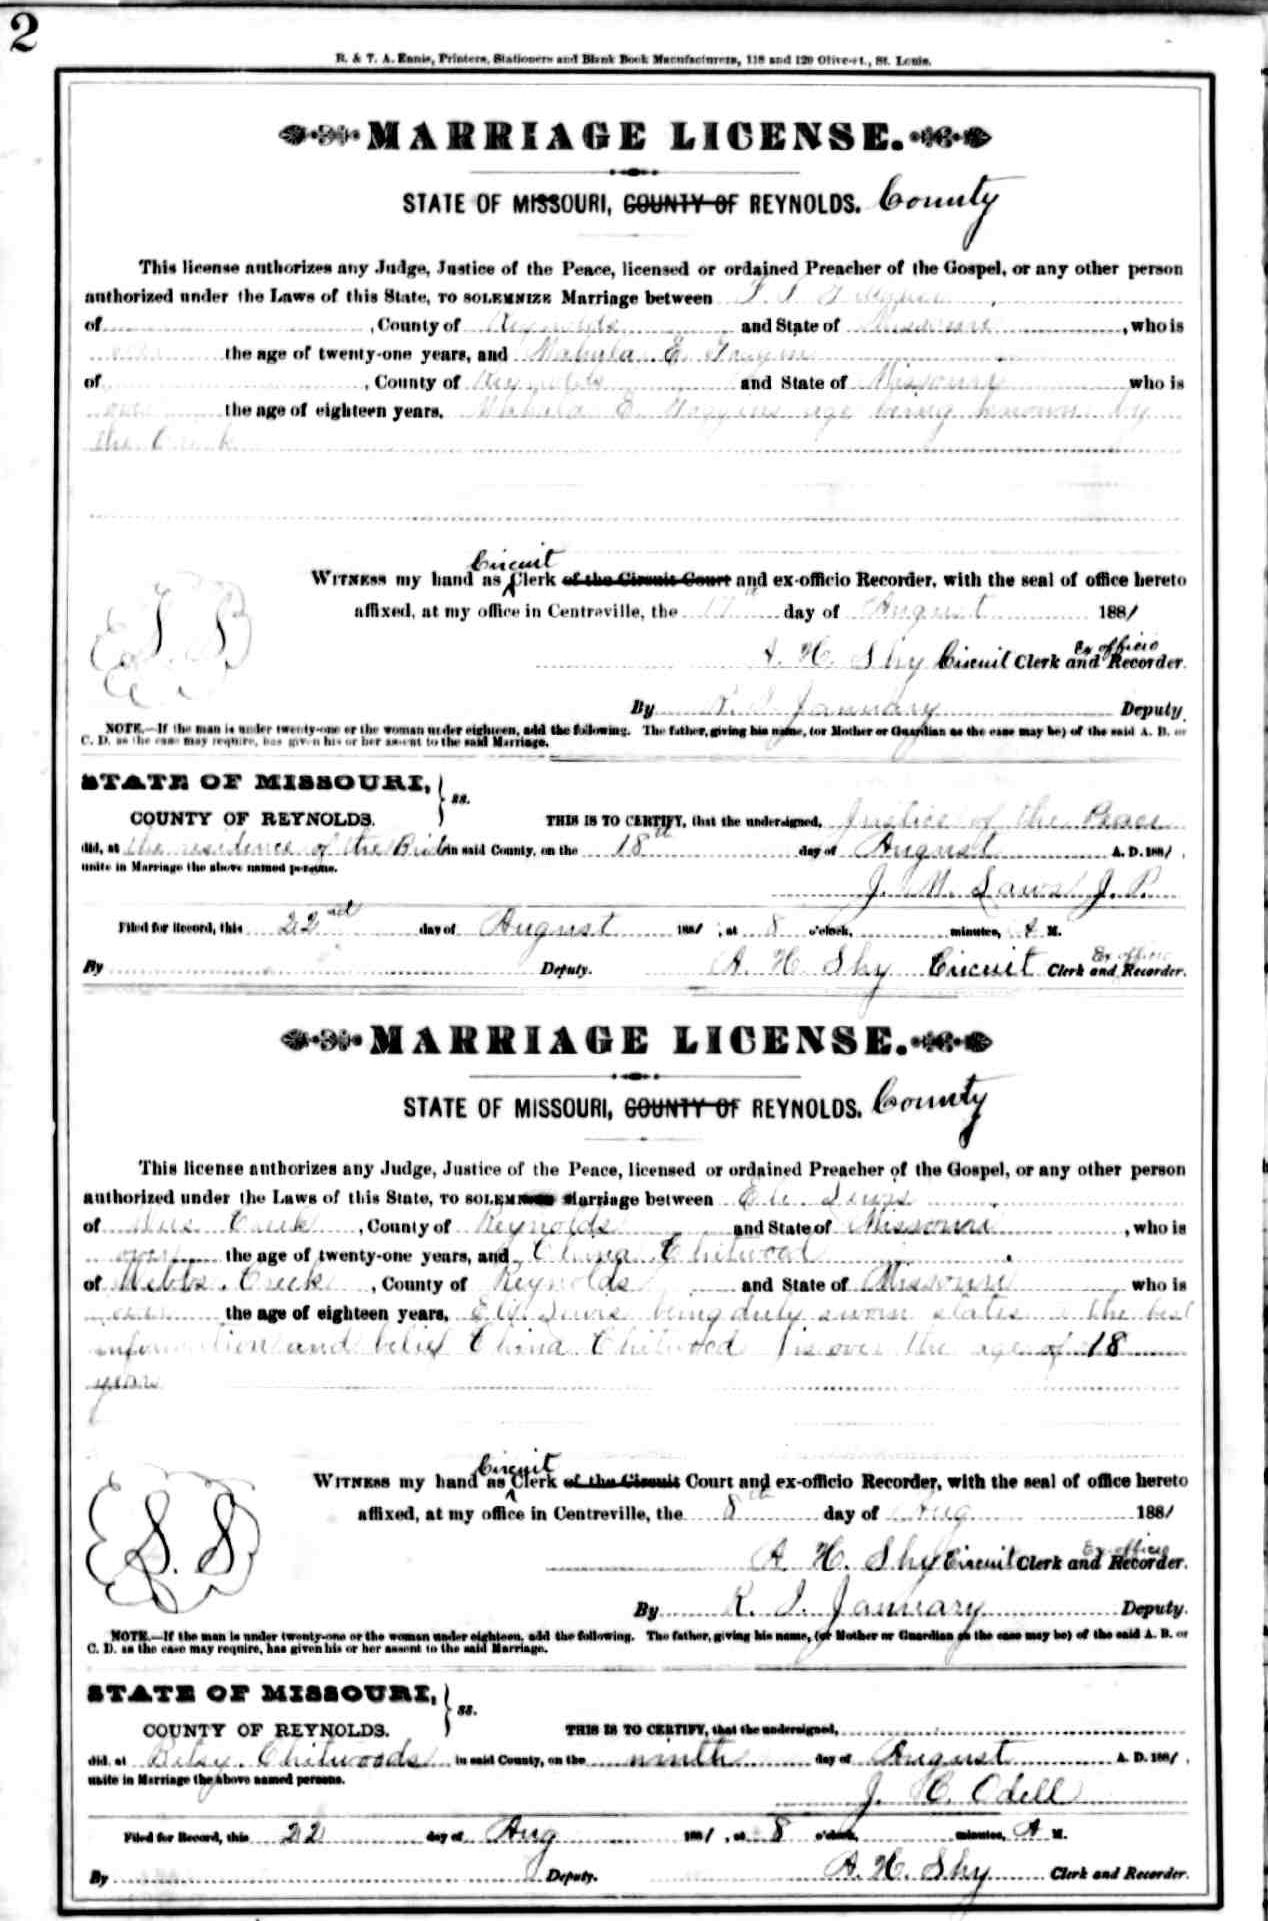 2
R. & T. A. Ennis, Printers, Stationers and Blank Book Manufacturers, 118 and 120 Olive-st., St. Louis.
MARRIAGE LICENSE.
STATE OF MISSOURI, COUNTY OF REYNOLDS. County
This license authorizes any Judge, Justice of the Peace, licensed or ordained Preacher of the Gospel, or any other person
authorized under the Laws of this State, TO SOLEMNIZE Marriage between
of , County of Reynolds and State of Missouri , who is
over the age of twenty-one years, and Mahala E.
of , County of Reynolds and State of Missouri who is
over the age of eighteen years, Mahala E. age being known by
the
Circuit
WITNESS my hand as Clerk of the Circuit Court and ex-officio Recorder, with the seal of office hereto
affixed, at my office in Centreville, the 17th day of August 1881
Ex officio
A. H. Shy Circuit Clerk and Recorder.
By R. I. January Deputy.
NOTE.—If the man is under twenty-one or the woman under eighteen, add the following. The father, giving his name, (or Mother or Guardian as the case may be) of the said A. B. or
C. D. as the case may require, has given his or her assent to the said Marriage.
STATE OF MISSOURI, } ss.
COUNTY OF REYNOLDS. THIS IS TO CERTIFY, that the undersigned, Justice of the Peace
did, at the residence of the Bride in said County, on the 18th day of August A. D. 1881,
unite in Marriage the above named persons.
J. M. Laws J. P.
Filed for Record, this 22nd day of August 1881, at 8 o'clock, minutes, A M.
Ex officio
By Deputy. A. H. Shy Circuit Clerk and Recorder.
MARRIAGE LICENSE.
STATE OF MISSOURI, COUNTY OF REYNOLDS. County
This license authorizes any Judge, Justice of the Peace, licensed or ordained Preacher of the Gospel, or any other person
authorized under the Laws of this State, TO SOLEMNIZE Marriage between Eli
of Creek , County of Reynolds and State of Missouri , who is
over the age of twenty-one years, and China Chitwood
of Webbs Creek , County of Reynolds and State of Missouri who is
over the age of eighteen years, being duly sworn states the best
information and belief China Chitwood is over the age of 18
years
Circuit
WITNESS my hand as Clerk of the Circuit Court and ex-officio Recorder, with the seal of office hereto
affixed, at my office in Centreville, the 8th day of Aug 1881
Ex officio
A. H. Shy Circuit Clerk and Recorder.
By R. I. January Deputy.
NOTE.—If the man is under twenty-one or the woman under eighteen, add the following. The father, giving his name, (or Mother or Guardian as the case may be) of the said A. B. or
C. D. as the case may require, has given his or her assent to the said Marriage.
STATE OF MISSOURI, } ss.
COUNTY OF REYNOLDS. THIS IS TO CERTIFY, that the undersigned,
did, at Betsy Chitwoods in said County, on the ninth day of August A. D. 1881,
unite in Marriage the above named persons.
J. C. Odell
Filed for Record, this 22 day of Aug 1881, at 8 o'clock, minutes, A M.
By Deputy. A. H. Shy Clerk and Recorder.